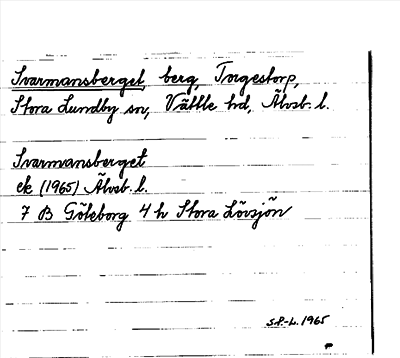 Svarmansberget, berg, Torgestorp,
Stora Lundby sn, Vättle hd, Älvsb. l.
Svarmansberget
ek (1965) Älvsb. l.
7 B Göteborg 4 h Stora Lövsjön
S.P.-L. 1965